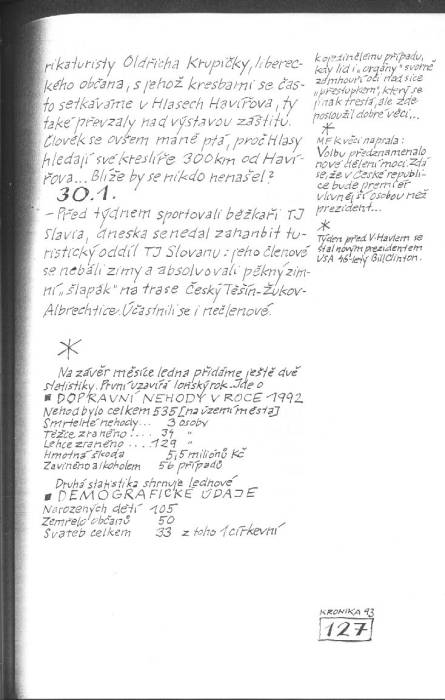 rikaturisty Oldřicha Krupičky, liberec-
kého občana, s jehož kresbami se čas-
to setkáváme v Hlasech Havířova, ty
také převzaly nad výstavou záštitu.
Člověk se ovšem maně ptá, proč Hlasy
hledají své kreslíře 300 km od Haví-
řova... Blíže by se nikdo nenašel?
30.1.
- Před týdnem sportovali běžkaři TJ
Slavia, dneska se nedal zahanbit tu-
ristický oddíl TJ Slovanu: jeho členové
se nebáli zimy a absolvovali pěkný zim-
ní „šlapák" na trase Český Těšín-Žukov-
Albrechtice. Účastnili se i nečlenové.
*
Na závěr měsíce ledna přidáme ještě dvě
statistiky. První uzavírá loňský rok. Jde o
■ DOPRAVNÍ NEHODY V ROCE 1992
Nehod bylo celkem 535 [na území města]
Smrtelné nehody... 3 osoby
Těžce zraněno .... 34 "
Lehce zraněno .... 129 "
Hmotná škoda 5,5 milionů Kč
Zaviněno alkoholem 56 případů
Druhá statistika shrnuje lednové
■ DEMOGRAFICKÉ ÚDAJE
Narozených dětí 105
Zemřelo občanů 50
Svateb celkem 33 z toho 1 církevní
k ojedinělému případu,
kdy lidi i „orgány" svorně
zamhouří oči nad sice
„přestupkem", který se
jinak trestá, ale zde
posloužil dobré věci...
*
MF k věci napsala:
Volbu předznamenalo
nové dělení moci. Zdá
se, že v České republi-
ce bude premiér
vlivnější osobou než
prezident...
*
Týden před V. Havlem se
stal novým prezidentem
USA 46-letý Bill Clinton.
KRONIKA 93
127